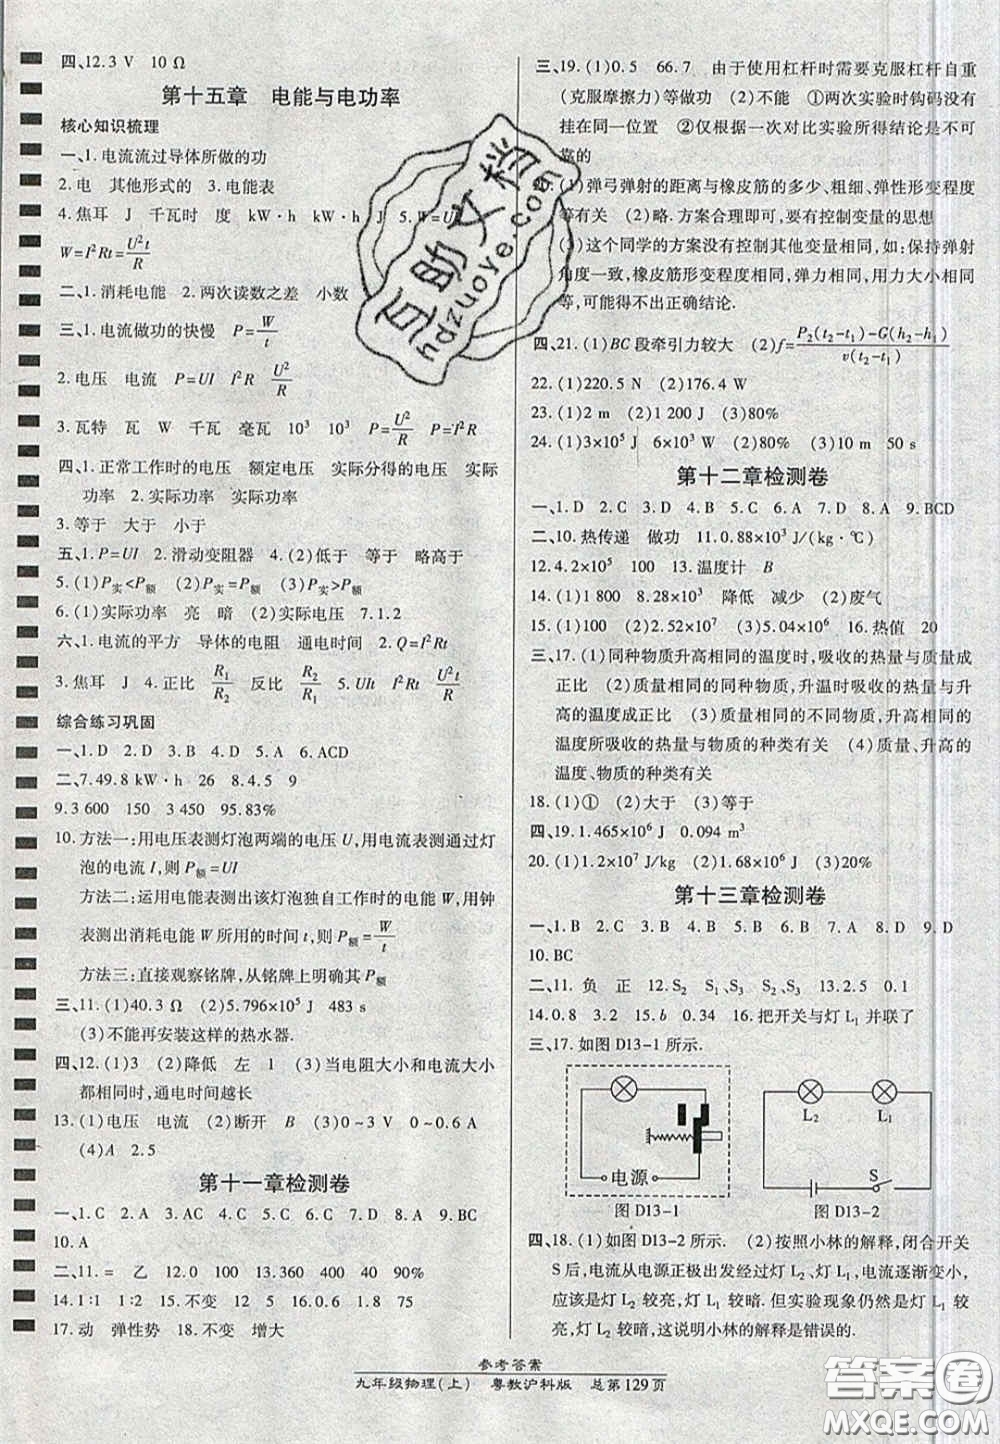 四、12.3 V　10 Ω
第十五章　电能与电功率
核心知识梳理
一、1.电流流过导体所做的功
2.电　其他形式的　3.电能表
4.焦耳　J　千瓦时　度　kW·h　kW·h　J　5.W=UIt
W=I²Rt=U²t/R
二、1.消耗电能　2.两次读数之差　小数
三、1.电流做功的快慢　P=W/t
2.电压　电流　P=UI　I²R　U²/R
3.瓦特　瓦　W　千瓦　毫瓦　10³　10³　P=U²/R　P=I²R
四、1.正常工作时的电压　额定电压　实际分得的电压　实际
功率　2.实际功率　实际功率
3.等于　大于　小于
五、1.P=UI　2.滑动变阻器　4.(2)低于　等于　略高于
5.(1)P实<P额　(2)P实=P额　(3)P实>P额
6.(1)实际功率　亮　暗　(2)实际电压　7.1.2
六、1.电流的平方　导体的电阻　通电时间　2.Q=I²Rt
3.焦耳　J　4.正比　R₁/R₂　反比　R₂/R₁　5.UIt　I²Rt　U²t/R
综合练习巩固
一、1.D　2.D　3.B　4.D　5.A　6.ACD
二、7.49.8 kW·h　26　8.4.5　9
9.3 600　150　3 450　95.83%
10.方法一:用电压表测灯泡两端的电压U,用电流表测通过灯
泡的电流I,则P额=UI
方法二:运用电能表测出该灯泡独自工作时的电能W,用钟
表测出消耗电能W所用的时间t,则P额=W/t
方法三:直接观察铭牌,从铭牌上明确其P额
三、11.(1)40.3 Ω　(2)5.796×10⁵ J　483 s
(3)不能再安装这样的热水器.
四、12.(1)3　(2)降低　左　1　(3)当电阻大小和电流大小
都相同时,通电时间越长
13.(1)电压　电流　(2)断开　B　(3)0~3 V　0~0.6 A
(4)A　2.5
第十一章检测卷
一、1.C　2.A　3.AC　4.C　5.D　6.C　7.D　8.AC　9.BC
10.A
二、11.=　乙　12.0　100　13.360　400　40　90%
14.1∶1　1∶2　15.不变　12　5　16.0.6　1.8　75
17.动　弹性势　18.不变　增大
三、19.(1)0.5　66.7　由于使用杠杆时需要克服杠杆自重
(克服摩擦力)等做功　(2)不能　①两次实验时钩码没有
挂在同一位置　②仅根据一次对比实验所得结论是不可
靠的
(1)弹弓弹射的距离与橡皮筋的多少、粗细、弹性形变程度
等有关　(2)略.方案合理即可,要有控制变量的思想
(3)这个同学的方案没有控制其他变量相同,如:保持弹射
角度一致,橡皮筋形变程度相同,弹力相同,用力大小相同
等,可能得不出正确结论.
四、21.(1)BC段牵引力较大　(2)f=P₂(t₂-t₁)-G(h₂-h₁)/v(t₂-t₁)
22.(1)220.5 N　(2)176.4 W
23.(1)2 m　(2)1 200 J　(3)80%
24.(1)3×10⁵ J　6×10³ W　(2)80%　(3)10 m　50 s
第十二章检测卷
一、1.D　2.C　3.D　4.B　5.C　6.D　7.D　8.A　9.BCD
二、10.热传递　做功　11.0.88×10³ J/(kg·℃)
12.4.2×10⁵　100　13.温度计　B
14.(1)1 800　8.28×10³　降低　减少　(2)废气
15.(1)100　(2)5.04×10⁷　1.2　16.热值　20
三、17.(1)同种物质升高相同的温度时,吸收的热量与质量成
正比　(2)质量相同的同种物质,升温时吸收的热量与升
高的温度成正比　(3)质量相同的不同物质,升高相同的
温度所吸收的热量与物质的种类有关　(4)质量、升高的
温度、物质的种类有关
18.(1)①　(2)大于　(3)等于
四、19.1.465×10⁶ J　0.094 m³
20.(1)1.2×10⁷ J/kg　(2)1.68×10⁶ J　(3)20%
第十三章检测卷
一、1.B　2.C　3.B　4.B　5.B　6.D　7.A　8.D　9.D
10.BC
二、11.负　正　12.S₂　S₁、S₃　S₂、S₃　13.2.5　0.1
14.0.8　3.2　15.b　0.34　16.把开关与灯L₁并联了
三、17.如图D13-1所示.
电源
图D13-1
L₂　L₁
S
图D13-2
四、18.(1)如图D13-2所示.　(2)按照小林的解释,闭合开关
S后,电流从电源正极出发经灯L₂、灯L₁,电流逐渐变小,
应该是灯L₂较亮,灯L₁较暗.但实验现象仍然是灯L₁较
亮,灯L₂较暗,这说明小林的解释是错误的.
参考答案
九年级物理(上)　粤教沪科版　总第129页
互助文档
hdzuoye.com
答案圈
MXQE.COM